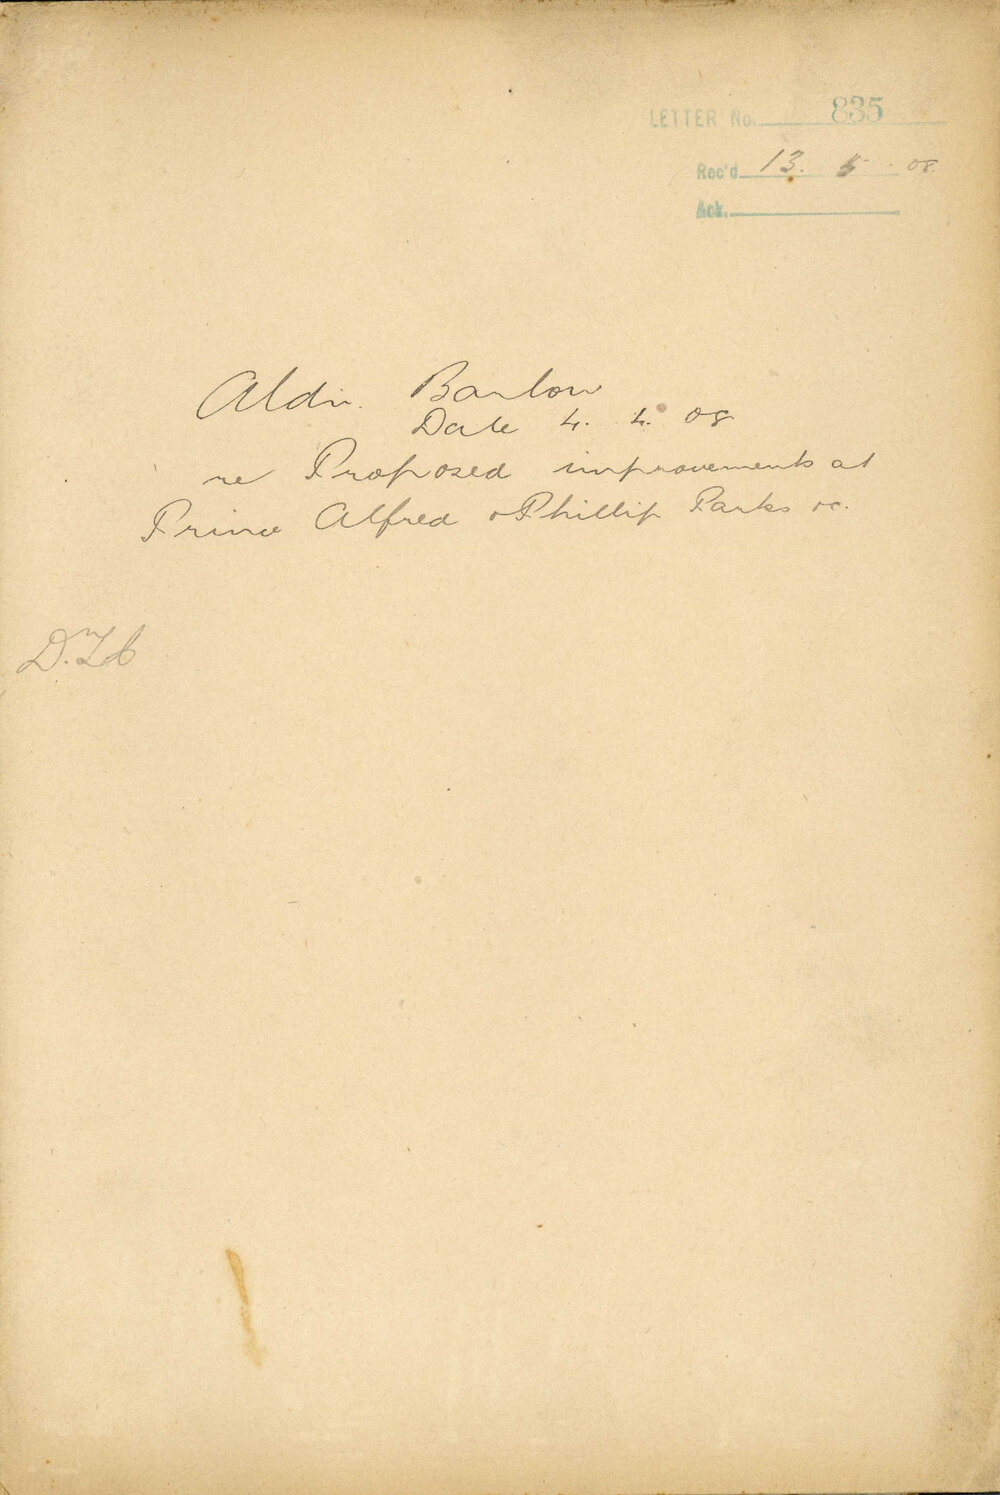 LETTER No. 835
Rec'd 13. 5. 08
Ack.
Aldn. Barlow
Date 4. 4. 08
re Proposed improvements at
Prince Alfred & Phillip Parks &c.